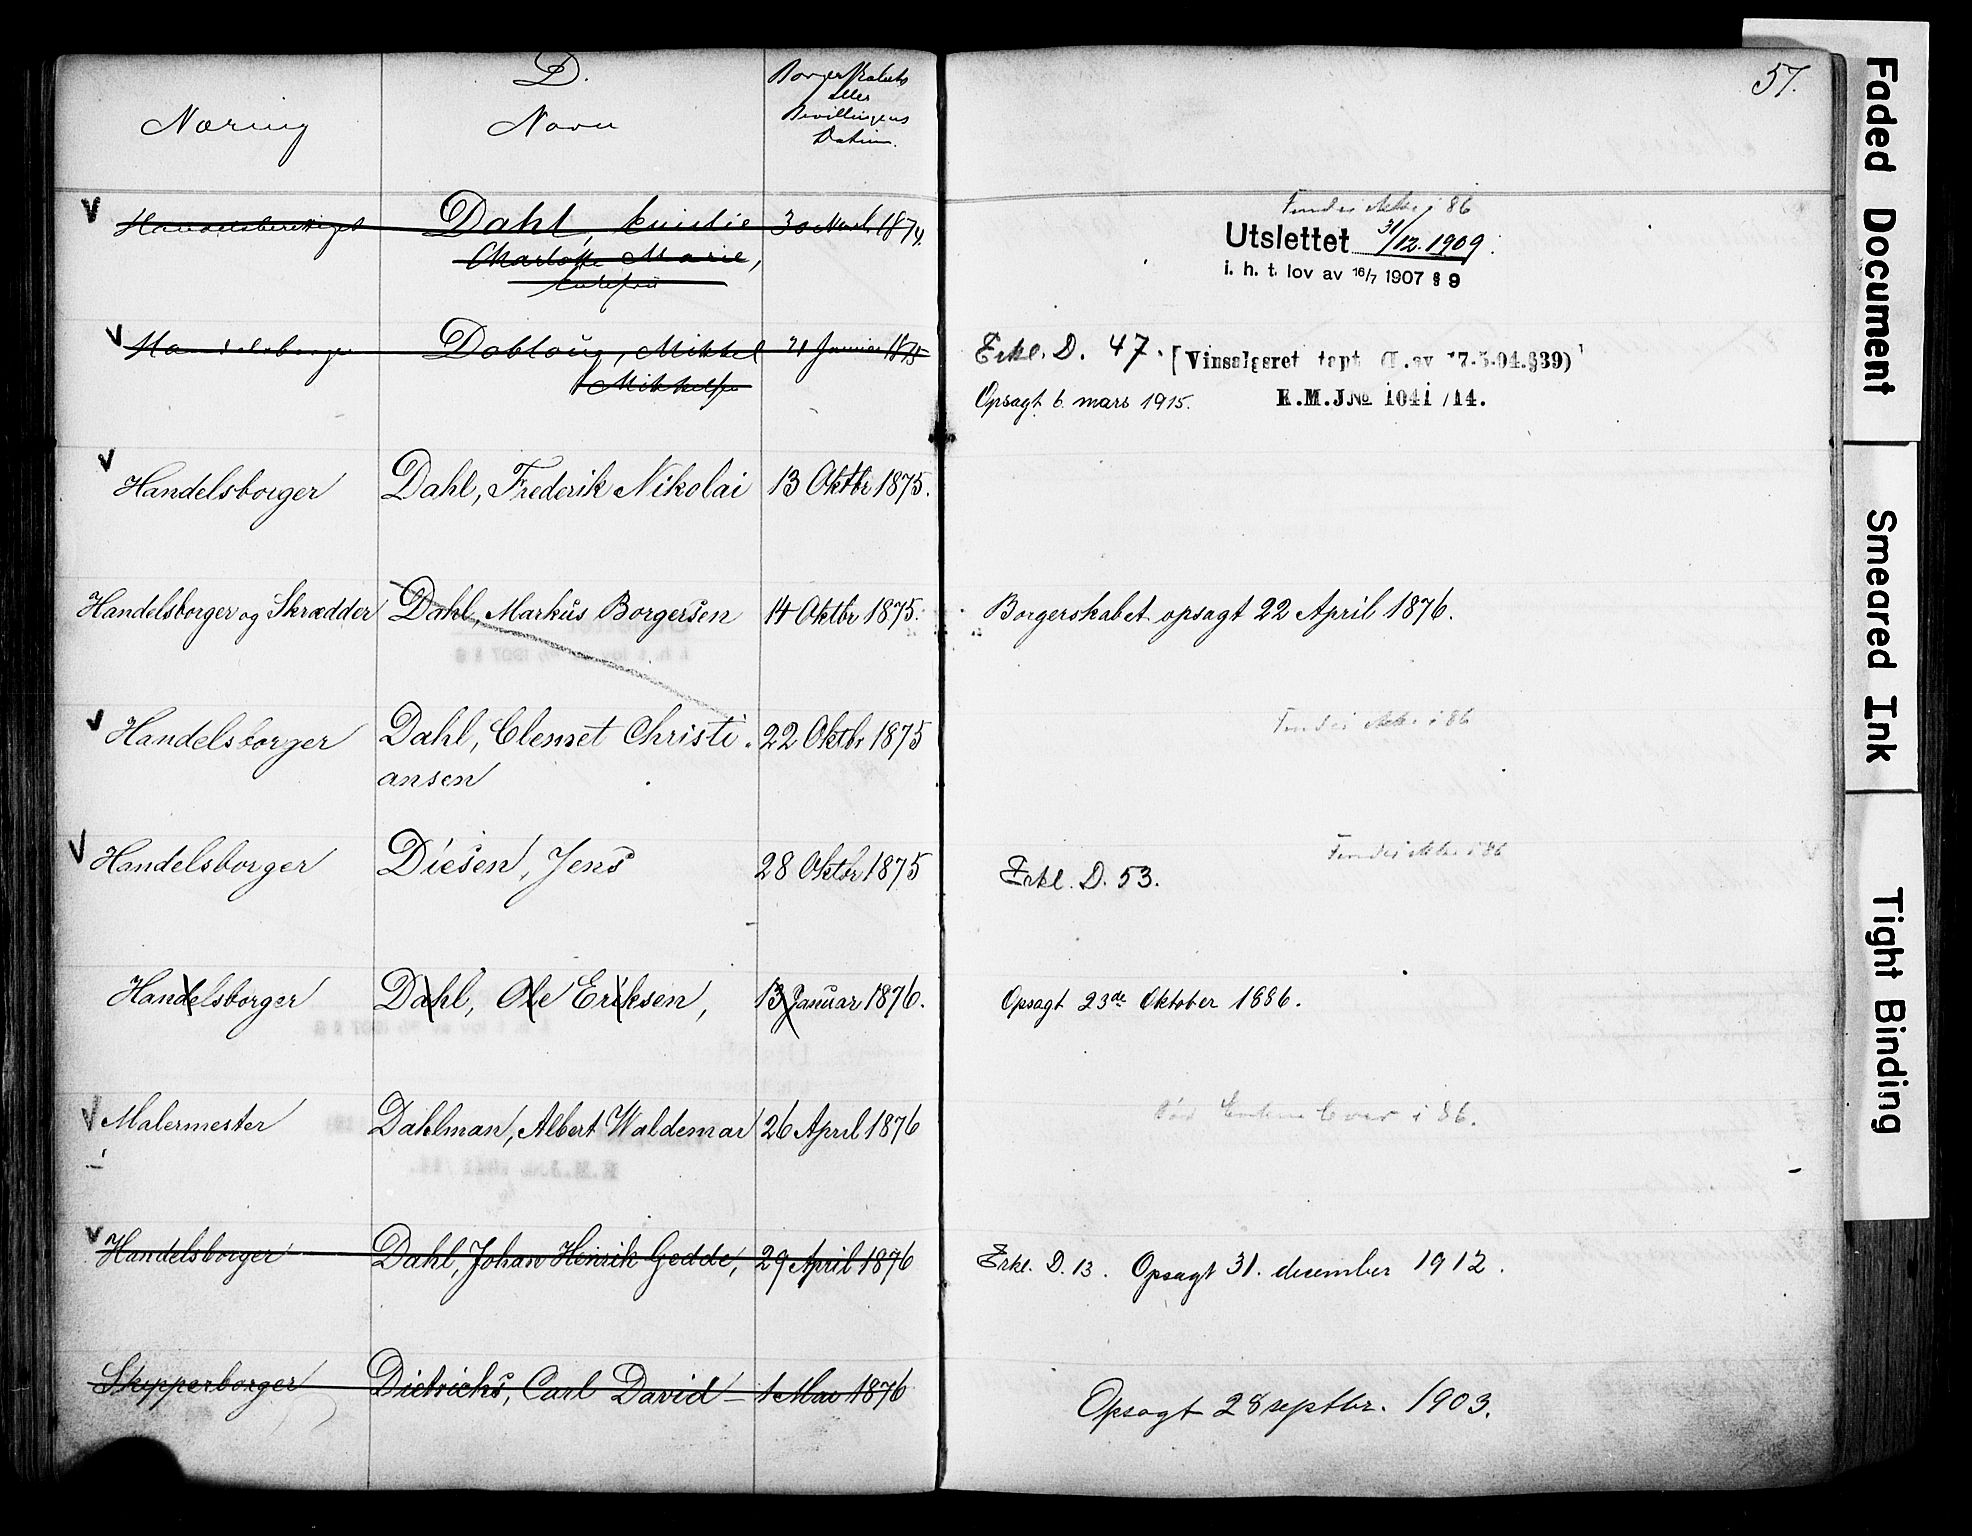 D.
57.
Næring
Navn
Borgerskabets
eller
Bevillingens
Datum.
V Handelsberettiget Dahl, Emilie 30 Novbr 1874. Findes ikke i 86
Charlotte Marie,
Utslettet 31/12. 1909.
i. h. t. lov av 16/7 1907 § 9
V Handelsborger Dobloug, Mikkel 21 Januar 1875 Erkl. D. 47. [Vinsalgsret tapt (L. av 17.5.04.§39)
Mikkelsen Opsagt 6. mars 1915. E.M.J.No 1041/14.
V Handelsborger Dahl, Frederik Nikolai 13 Oktbr 1875.
Handelsborger og Skrædder Dahl, Markus Borgersen 14 Oktbr 1875. Borgerskabet opsagt 22 April 1876.
V Handelsborger Dahl, Clemet Christi- 22 Oktbr 1875 Findes ikke i 86
ansen
V Handelsborger Diesen, Jens 28 Oktbr 1875 Erkl. D. 53. Findes ikke i 86
Handelsborger Dahl, Ole Eriksen, 13 Januar 1876. Opsagt 23de Oktober 1886.
V Malermester Dahlman, Albert Waldemar 26 April 1876 i 86.
V Handelsborger Dahl, Johan Henrik Gedde, 29 April 1876 Erkl. D. 13. Opsagt 31. december 1912.
Skipperborger Dietrichs, Carl David - 1 Mai 1876 Opsagt 28 septbr. 1903.
Faded Document
Smeared Ink
Tight Binding